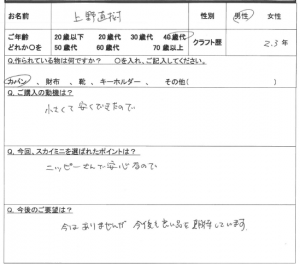 お名前 上野直樹 性別 男性 女性
ご年齢 20歳以下 20歳代 30歳代 40歳代 クラフト歴 2.3年
どれか○を 50歳代 60歳代 70歳以上
Q.作られている物は何ですか? ○を入れ、ご記入してください。
カバン 、 財布 、 靴 、 キーホルダー 、 その他( )
Q.ご購入の動機は?
小さくて安くできたので
Q.今回、スカイミニを選ばれたポイントは?
ニッピーさんで安心なので
Q.今後のご要望は?
今はありませんが 今後も良い品を期待しています